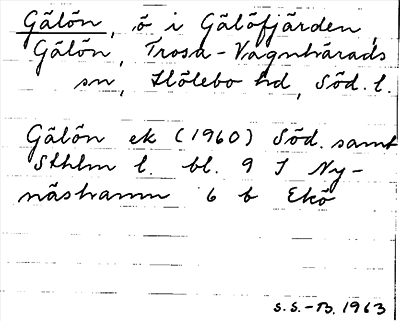 Gålön, ö i Gålöfjärden,
Gålön, Trosa-Vagnhärads
sn, Hölebo hd, Söd. l.
Gålön ek (1960) Söd. samt
Sthlm l. bl. 9 I Ny-
näshamn 6 b Ekö
S.S.-B. 1963